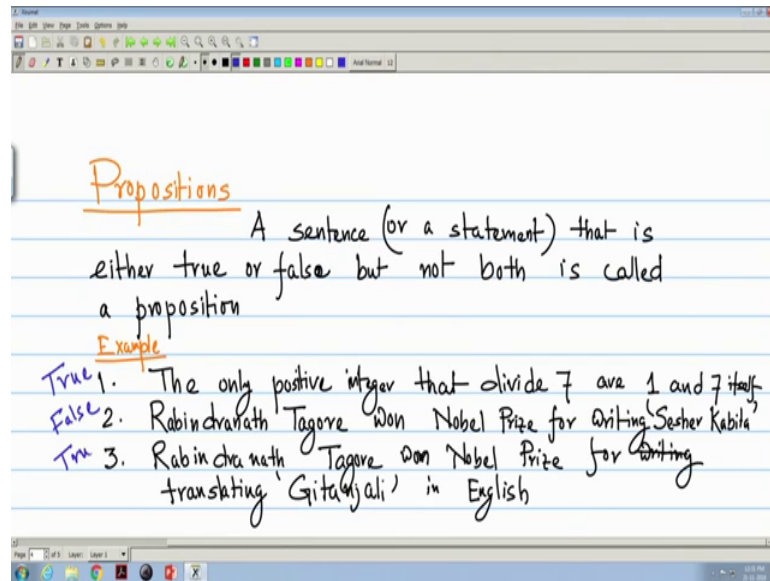 Journal
File Edit View Page Tools Options Help
Arial Normal 12
Propositions
A sentence (or a statement) that is
either true or false but not both is called
a proposition
Example
True 1. The only positive integer that divide 7 are 1 and 7 itself
False 2. Rabindranath Tagore Won Nobel Prize for writing 'Sesher Kabita'
Tru 3. Rabindranath Tagore won Nobel Prize for writing
translating 'Gitanjali' in English
Page 4 of 5 Layer: Layer 1